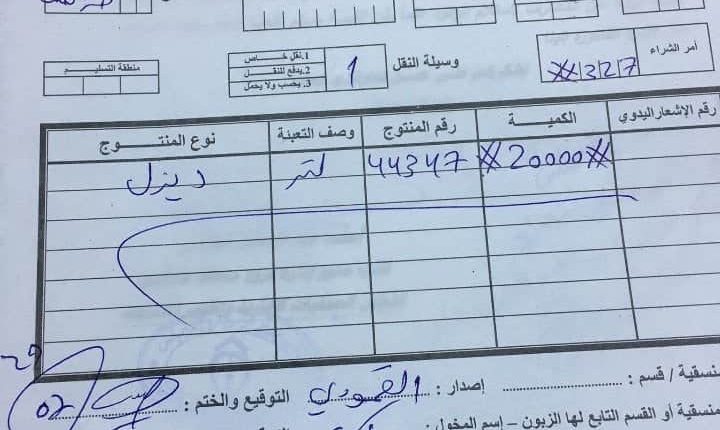 أمر الشراء
327
وسيلة النقل
1
1. نقل خـــاص
2. يدفع للنقـــل
3. يحسب ولا يحمل
منطقة التسليـــم
رقم الإشعار اليدوي الكميـــة رقم المنتوج وصف التعبئة نوع المنتـــوج
20000 44347 لتر ديزل
منسقية / قسم : إصدار : التوقيع والختم :
منسقية أو القسم التابع لها الزبون – إسم المخول :